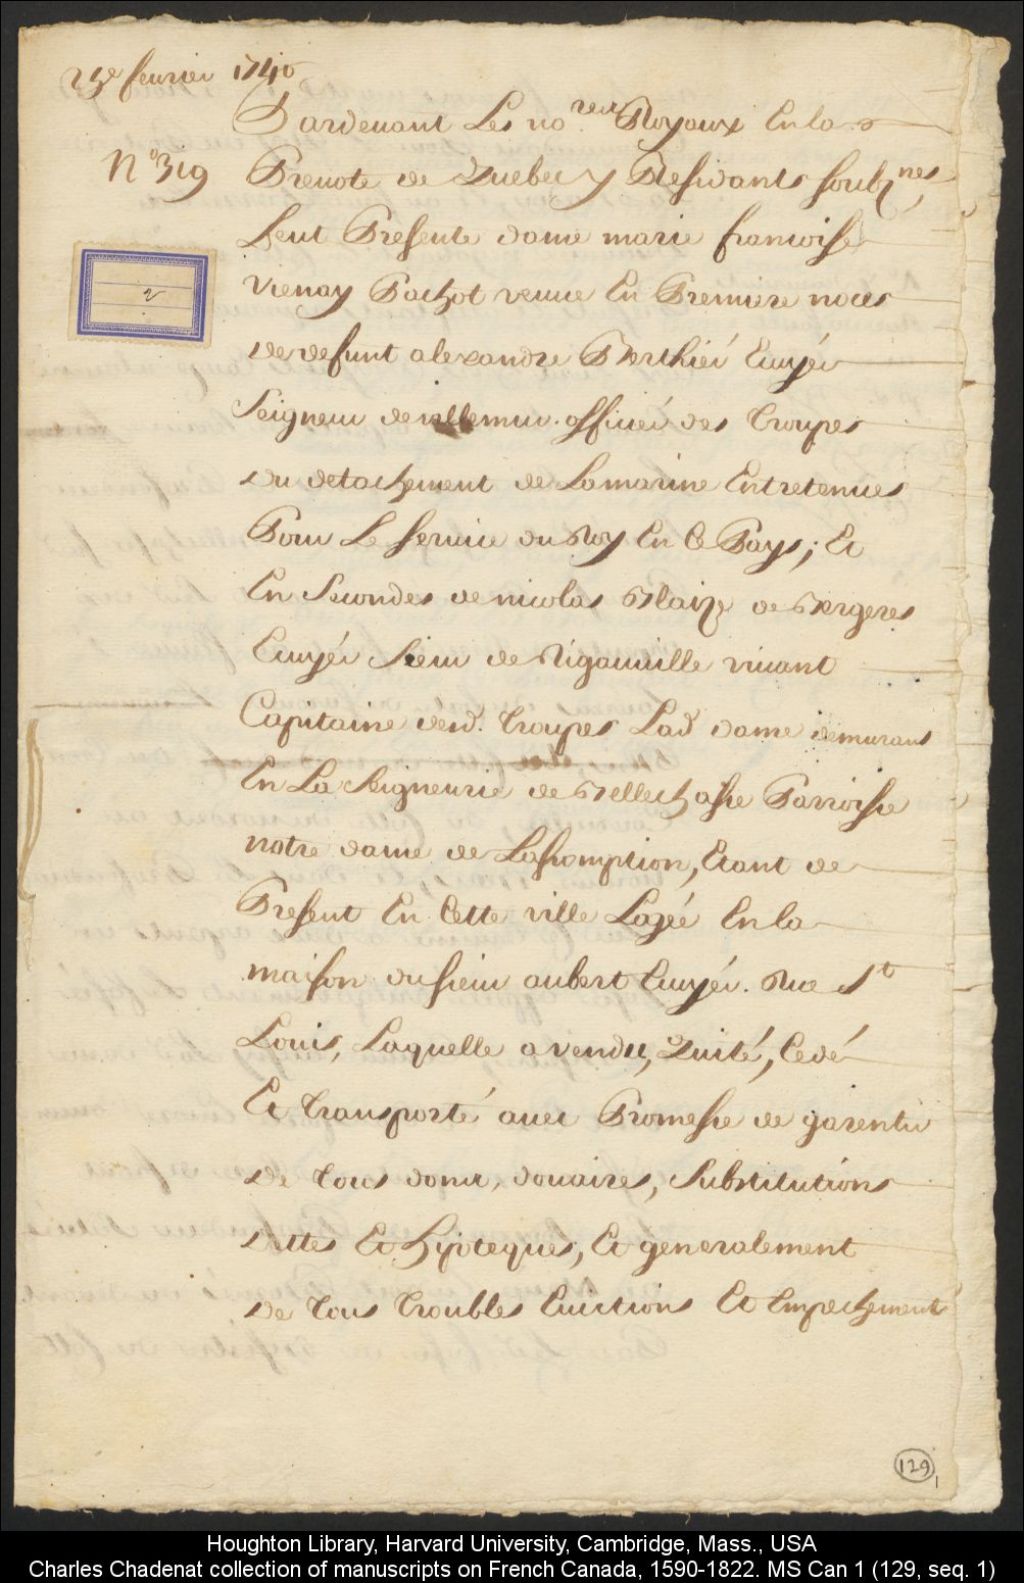 25e feurier 1740
Pardeuant Les no.res Royaux En la
No 319
Preuoté de Quebec y Residants soubz.nes
feut Presente dame marie francoise
Vienay Pachot veuue En Premiere noces
de defunt alexandre Berthier Ecuyer
Seigneur de villemur officier des Troupes
du detachement de La marine Entretenues
Pour Le seruice du Roy En Ce Pays; Et
En Secondes de nicolas Blaize de Bergeres
Ecuyer Sieur de Rigauuille viuant
Capitaine desd. Troupes Lad dame demurant
En La Seigneurie de Bellechasse Parroisse
notre dame de Lassomption, Etant de
Present En Cette ville Logée En la
maison du sieur aubert Ecuyer. Rue St
Louis, Laquelle a vendu, Quité, Cedé
Et Transporté auec Promesse de garentir
de Tous dons, douaires, substitutions
dettes Et hypoteques, Et generalement
de Tous Troubles Euictions Et Empechements
2
129
1
Houghton Library, Harvard University, Cambridge, Mass., USA
Charles Chadenat collection of manuscripts on French Canada, 1590-1822. MS Can 1 (129, seq. 1)